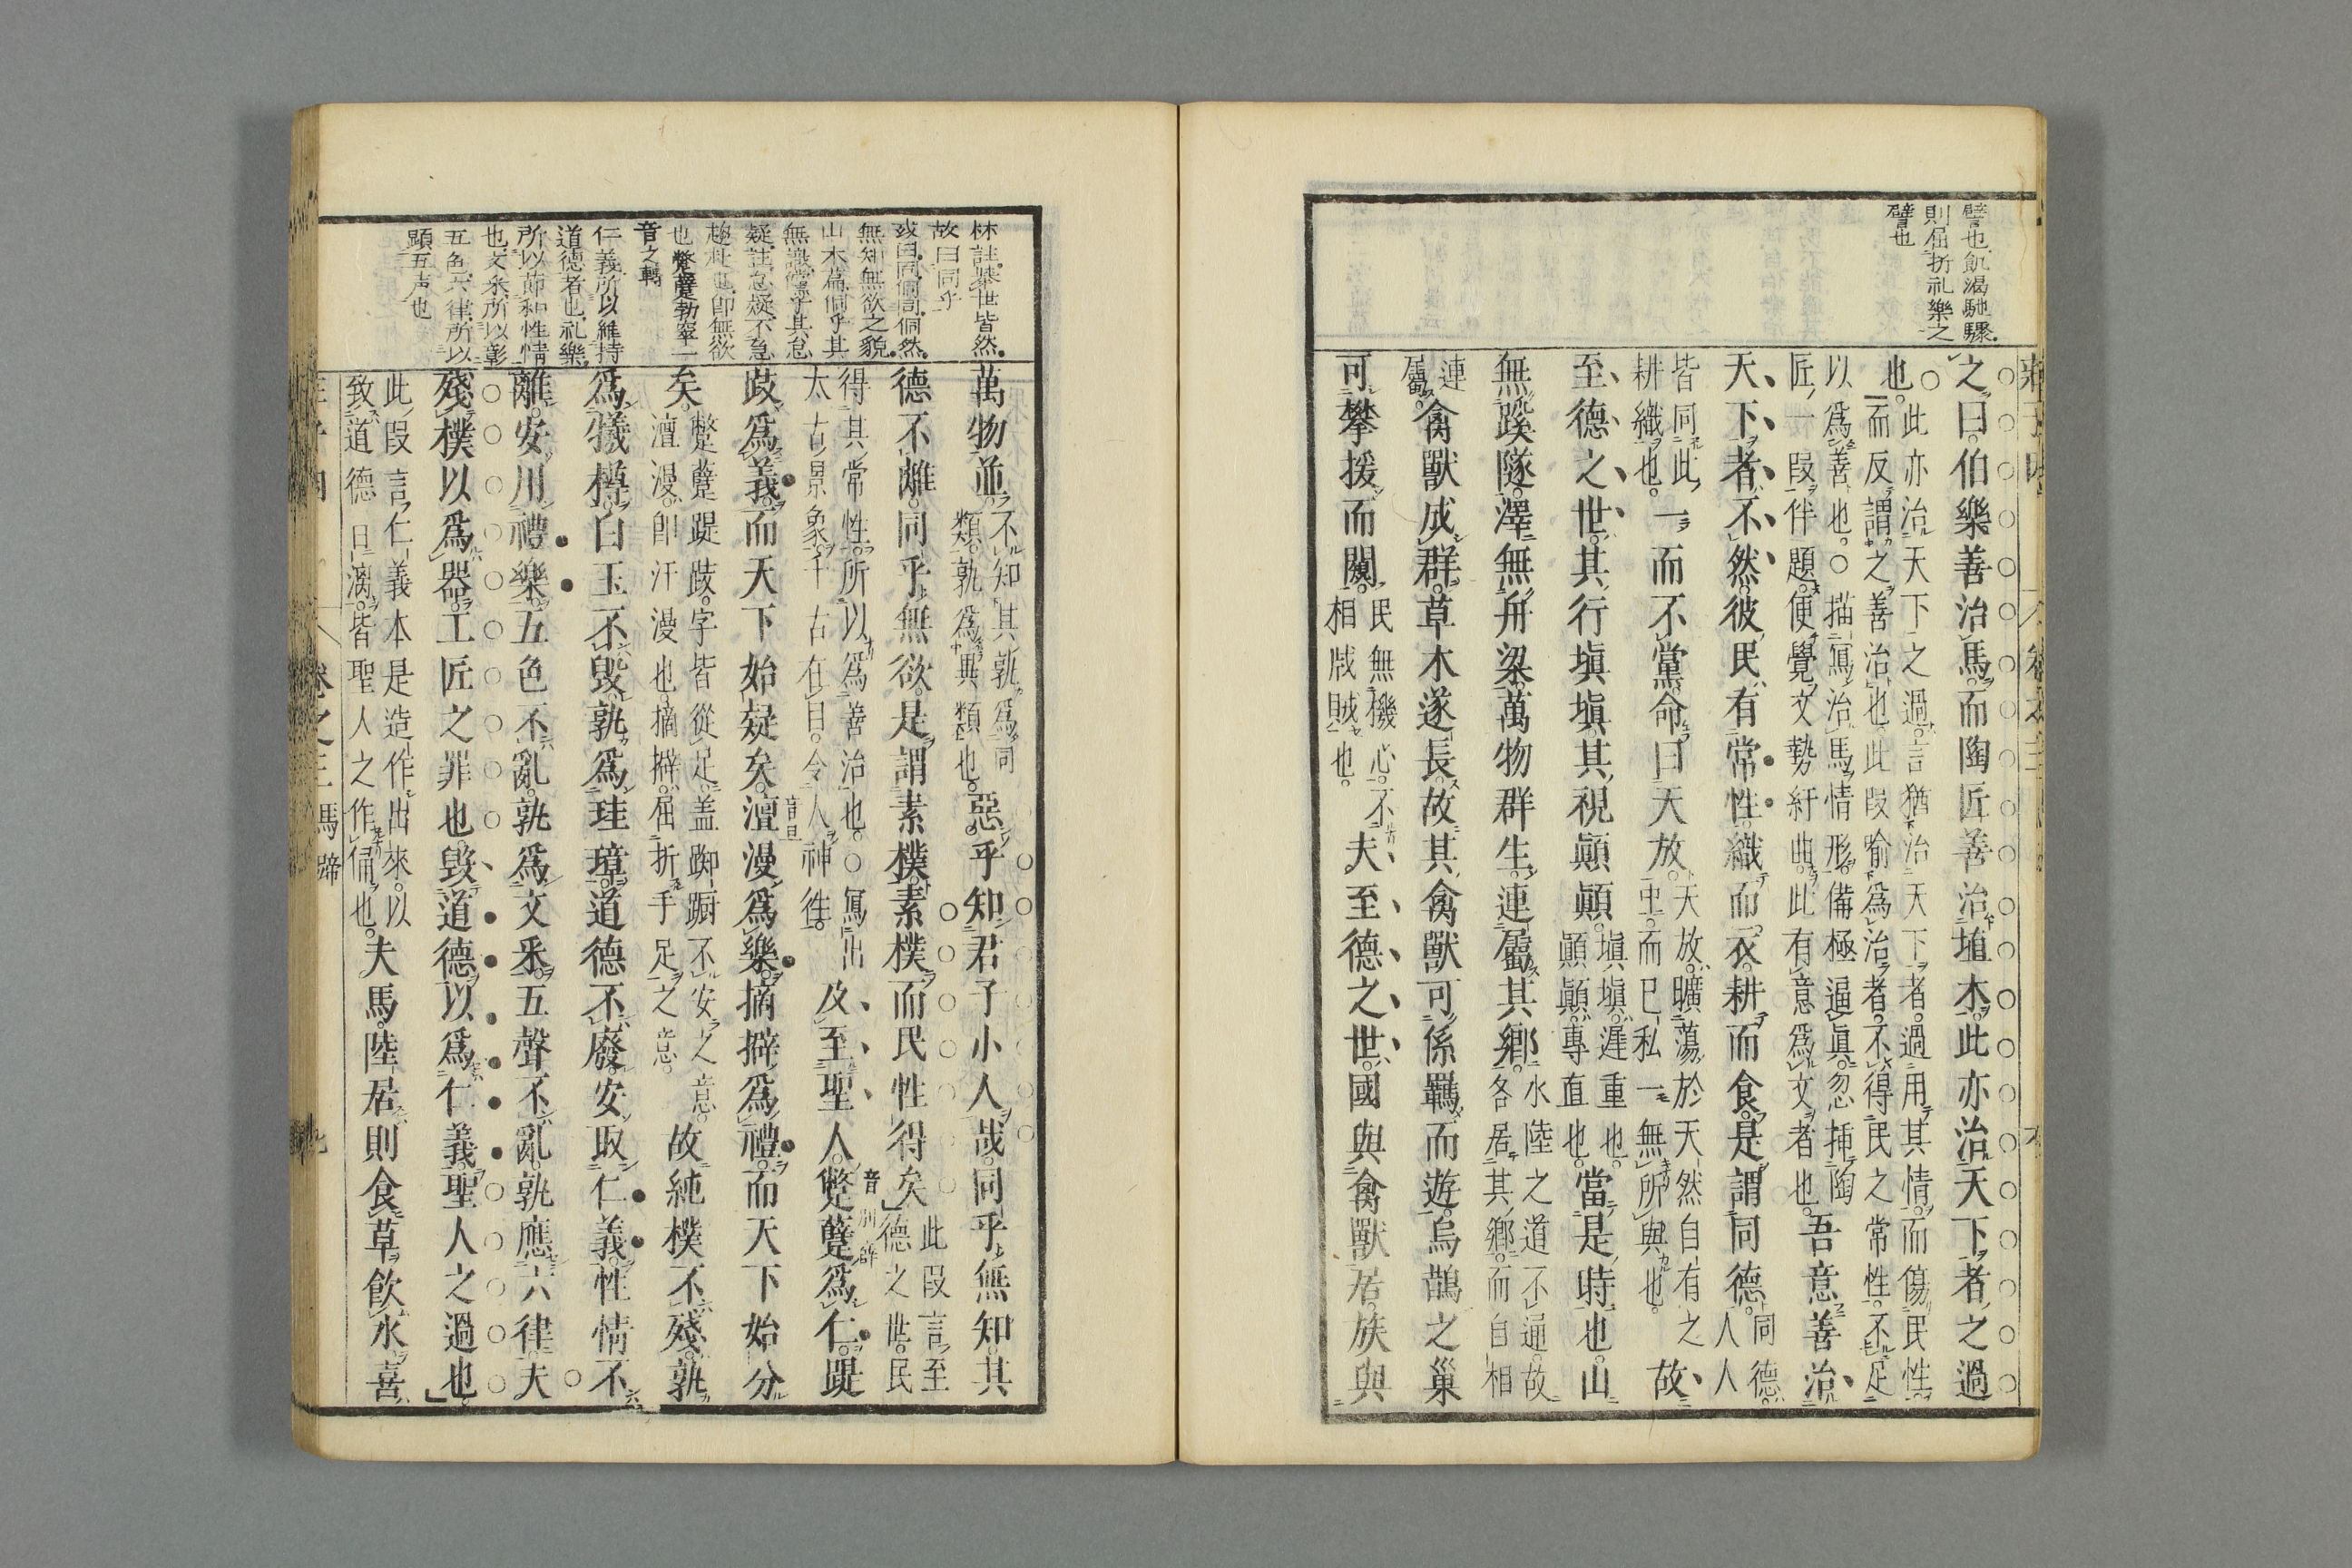 譬也飢渴馳驟
則屈折礼樂之
譬也
之曰伯樂善治馬而陶匠善治埴木此亦治天下者之過
也○此亦治天下之過言猶治天下者過用其情而傷民性
而反謂之善治也此段喻爲治者不得民之常性不足
以爲善也○描寫治馬情形備極逼眞忽揷陶
匠一段伴題便覺文勢紆曲此有意爲文者也吾意善治
天下者不然彼民有常性織而衣耕而食是謂同德同德人人
皆同此
耕織也一而不黨命曰天放天放曠蕩於天然自有之
中而已私一無所與也故
至德之世其行塡塡其視顚顚塡塡遲重也
顚顚專直也當是時也山
無蹊隧澤無舟梁萬物群生連屬其鄉水陸之道不通故
各居其鄉而自相
連
屬禽獸成群草木遂長故其禽獸可係羈而遊鳥鵲之巢
可攀援而闚民無機心不
相戕賊也夫至德之世國與禽獸居族與
林註擧世皆然
故曰同乎
註曰同侗同侗然
無知無欲之貌
山木篇侗乎其
無識儻乎其怠
疑註怠疑不急
趨赴也卽無欲
也蹩躠勃窣一
音之轉
仁義所以維持
道德者也礼樂
所以節和性情
也文釆所以彰
五色六律所以
顯五声也
萬物並不知其孰爲同
類孰爲異類也惡乎知君子小人哉同乎無知其
德不離同乎無欲是謂素樸素樸而民性得矣此段言至
德之世民
得其常性所以爲善治也○寫出
太古景象千古在目令人神徃及至聖人蹩躠爲仁踶
跂爲義而天下始疑矣澶漫爲樂摘擗爲禮而天下始分
矣蹩躠踶跂字皆從足盖踟蹰不安之意
澶漫卽汗漫也摘擗屈折手足之意故純樸不殘孰
爲犧樽白玉不毁孰爲珪璋道德不廢安取仁義性情不
離安用禮樂五色不亂孰爲文釆五聲不亂孰應六律夫
殘樸以爲器工匠之罪也毁道德以爲仁義聖人之過也
此段言仁義本是造作出來以
致道德日漓皆聖人之作俑也夫馬陸居則食草飮水喜
卷之三 馬蹄